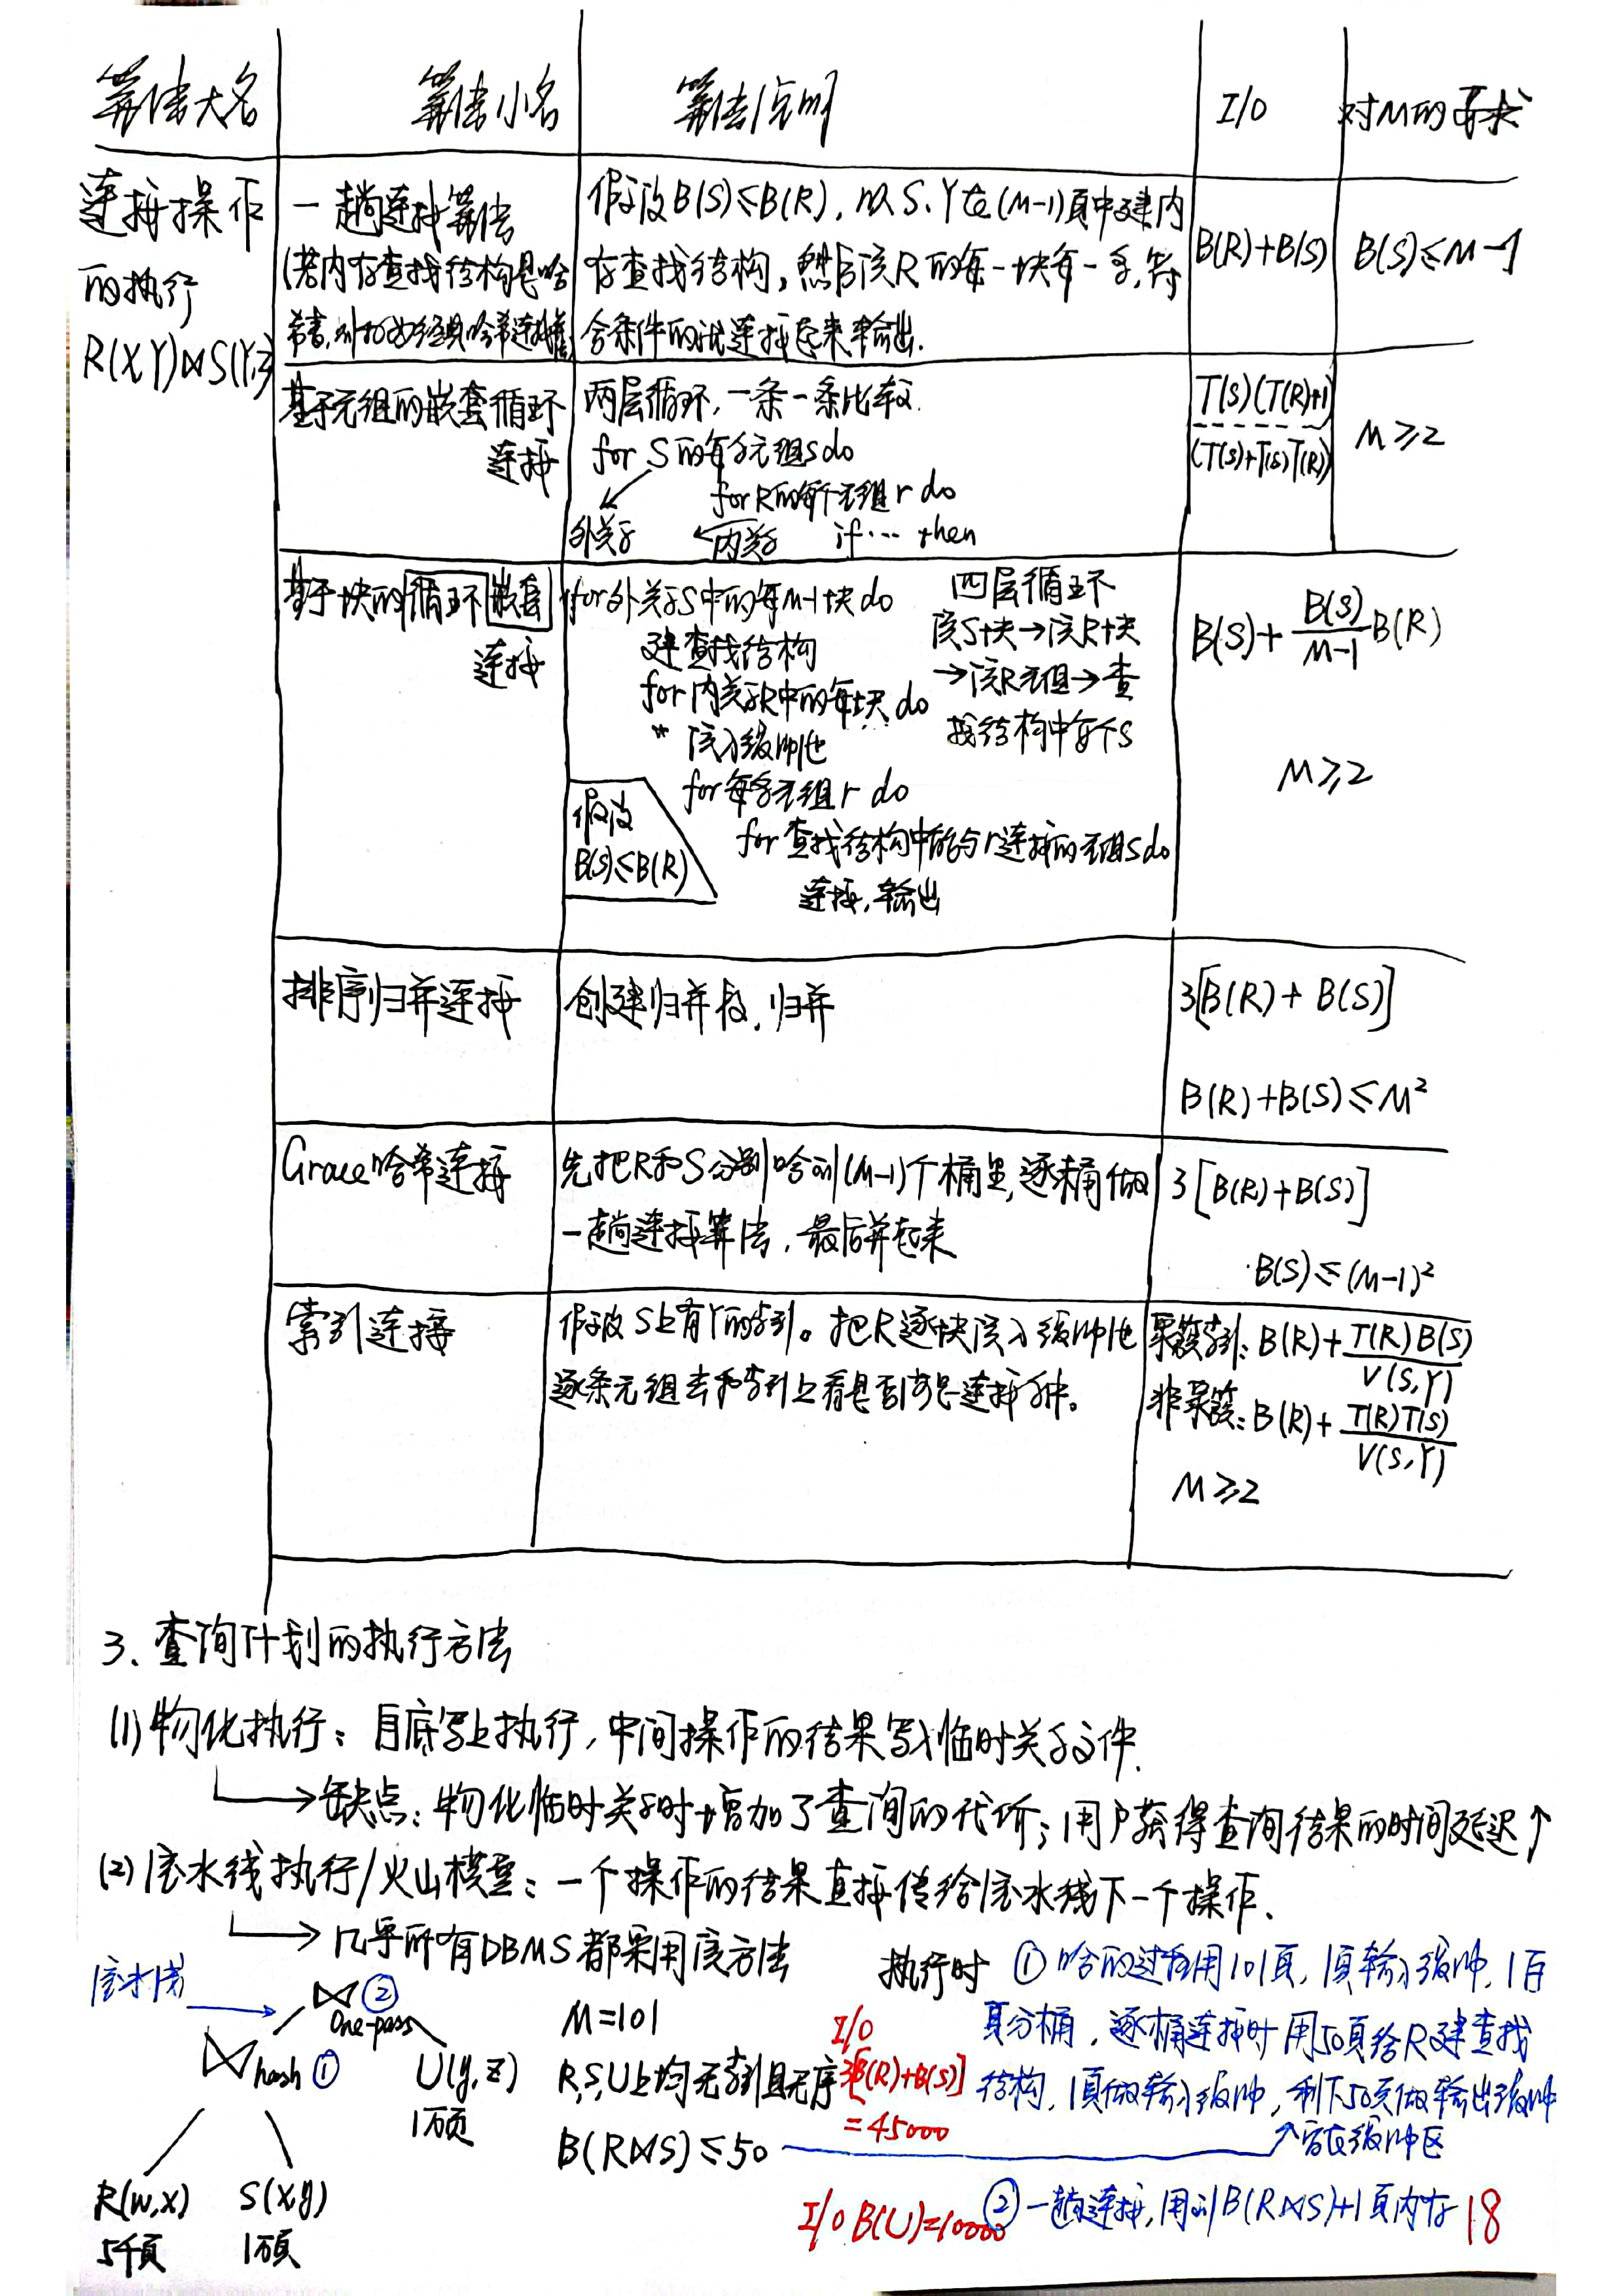 算法大名 算法小名 算法说明 I/O 对M的要求
连接操作
的执行
R(X,Y)⋈S(Y,Z)
一趟连接算法
(若内存查找结构是哈
希表,
假设B(S)≤B(R), 以S.Y在(M-1)页中建内
存查找结构, 然后读R的每一块每一条, 符
合条件的就连接起来输出.
B(R)+B(S)
B(S)≤M-1
基于元组的嵌套循环
连接
两层循环, 一条一条比较.
for S的每条元组s do
for R的每个元组r do
外关系 内关系 if… then
T(S)(T(R)+1)
(T(S)+T(S)T(R))
M≥2
基于块的循环嵌套
连接
for外关系S中的每M-1块do
建查找结构
for内关系R中的每块do
读入缓冲池
for每条元组r do
for查找结构中能与r连接的元组s do
连接,输出
假设
B(S)≤B(R)
四层循环
读S块→读R块
→读R元组→查
找结构中每个S
B(S)+B(S)/(M-1)B(R)
M≥2
排序归并连接
创建归并段, 归并
3[B(R)+B(S)]
B(R)+B(S)≤M²
Grace哈希连接
先把R和S分别哈到(M-1)个桶里,逐桶做
一趟连接算法, 最后并起来
3[B(R)+B(S)]
B(S)≤(M-1)²
索引连接
假设S上有Y的索引。把R逐块读入缓冲池
逐条元组去和索引上看是否满足连接条件。
聚簇索引: B(R)+T(R)B(S)/V(S,Y)
非聚簇: B(R)+T(R)T(S)/V(S,Y)
M≥2
3、查询计划的执行方法
(1)物化执行: 自底向上执行, 中间操作的结果写入临时关系文件.
→缺点: 物化临时关系时增加了查询的代价; 用户获得查询结果的时间延迟↑
(2)流水线执行/火山模型: 一个操作的结果直接传给流水线下一个操作.
→几乎所有DBMS都采用该方法
流水线
⋈②
One-pass
⋈hash①
U(y,z)
1万页
R(w,x) S(x,y)
5千页 1万页
M=101
R,S,U上均无索引且无序
B(R⋈S)≤50
I/O
3[B(R)+B(S)]
=45000
执行时 ①哈的过程用101页, 1页输入缓冲, 1百
页分桶, 逐桶连接时用50页给R建查找
结构, 1页做输入缓冲, 剩下50页做输出缓冲
↗存在缓冲区
I/O B(U)=10000
②一趟连接, 用到B(R⋈S)+1页内存
18